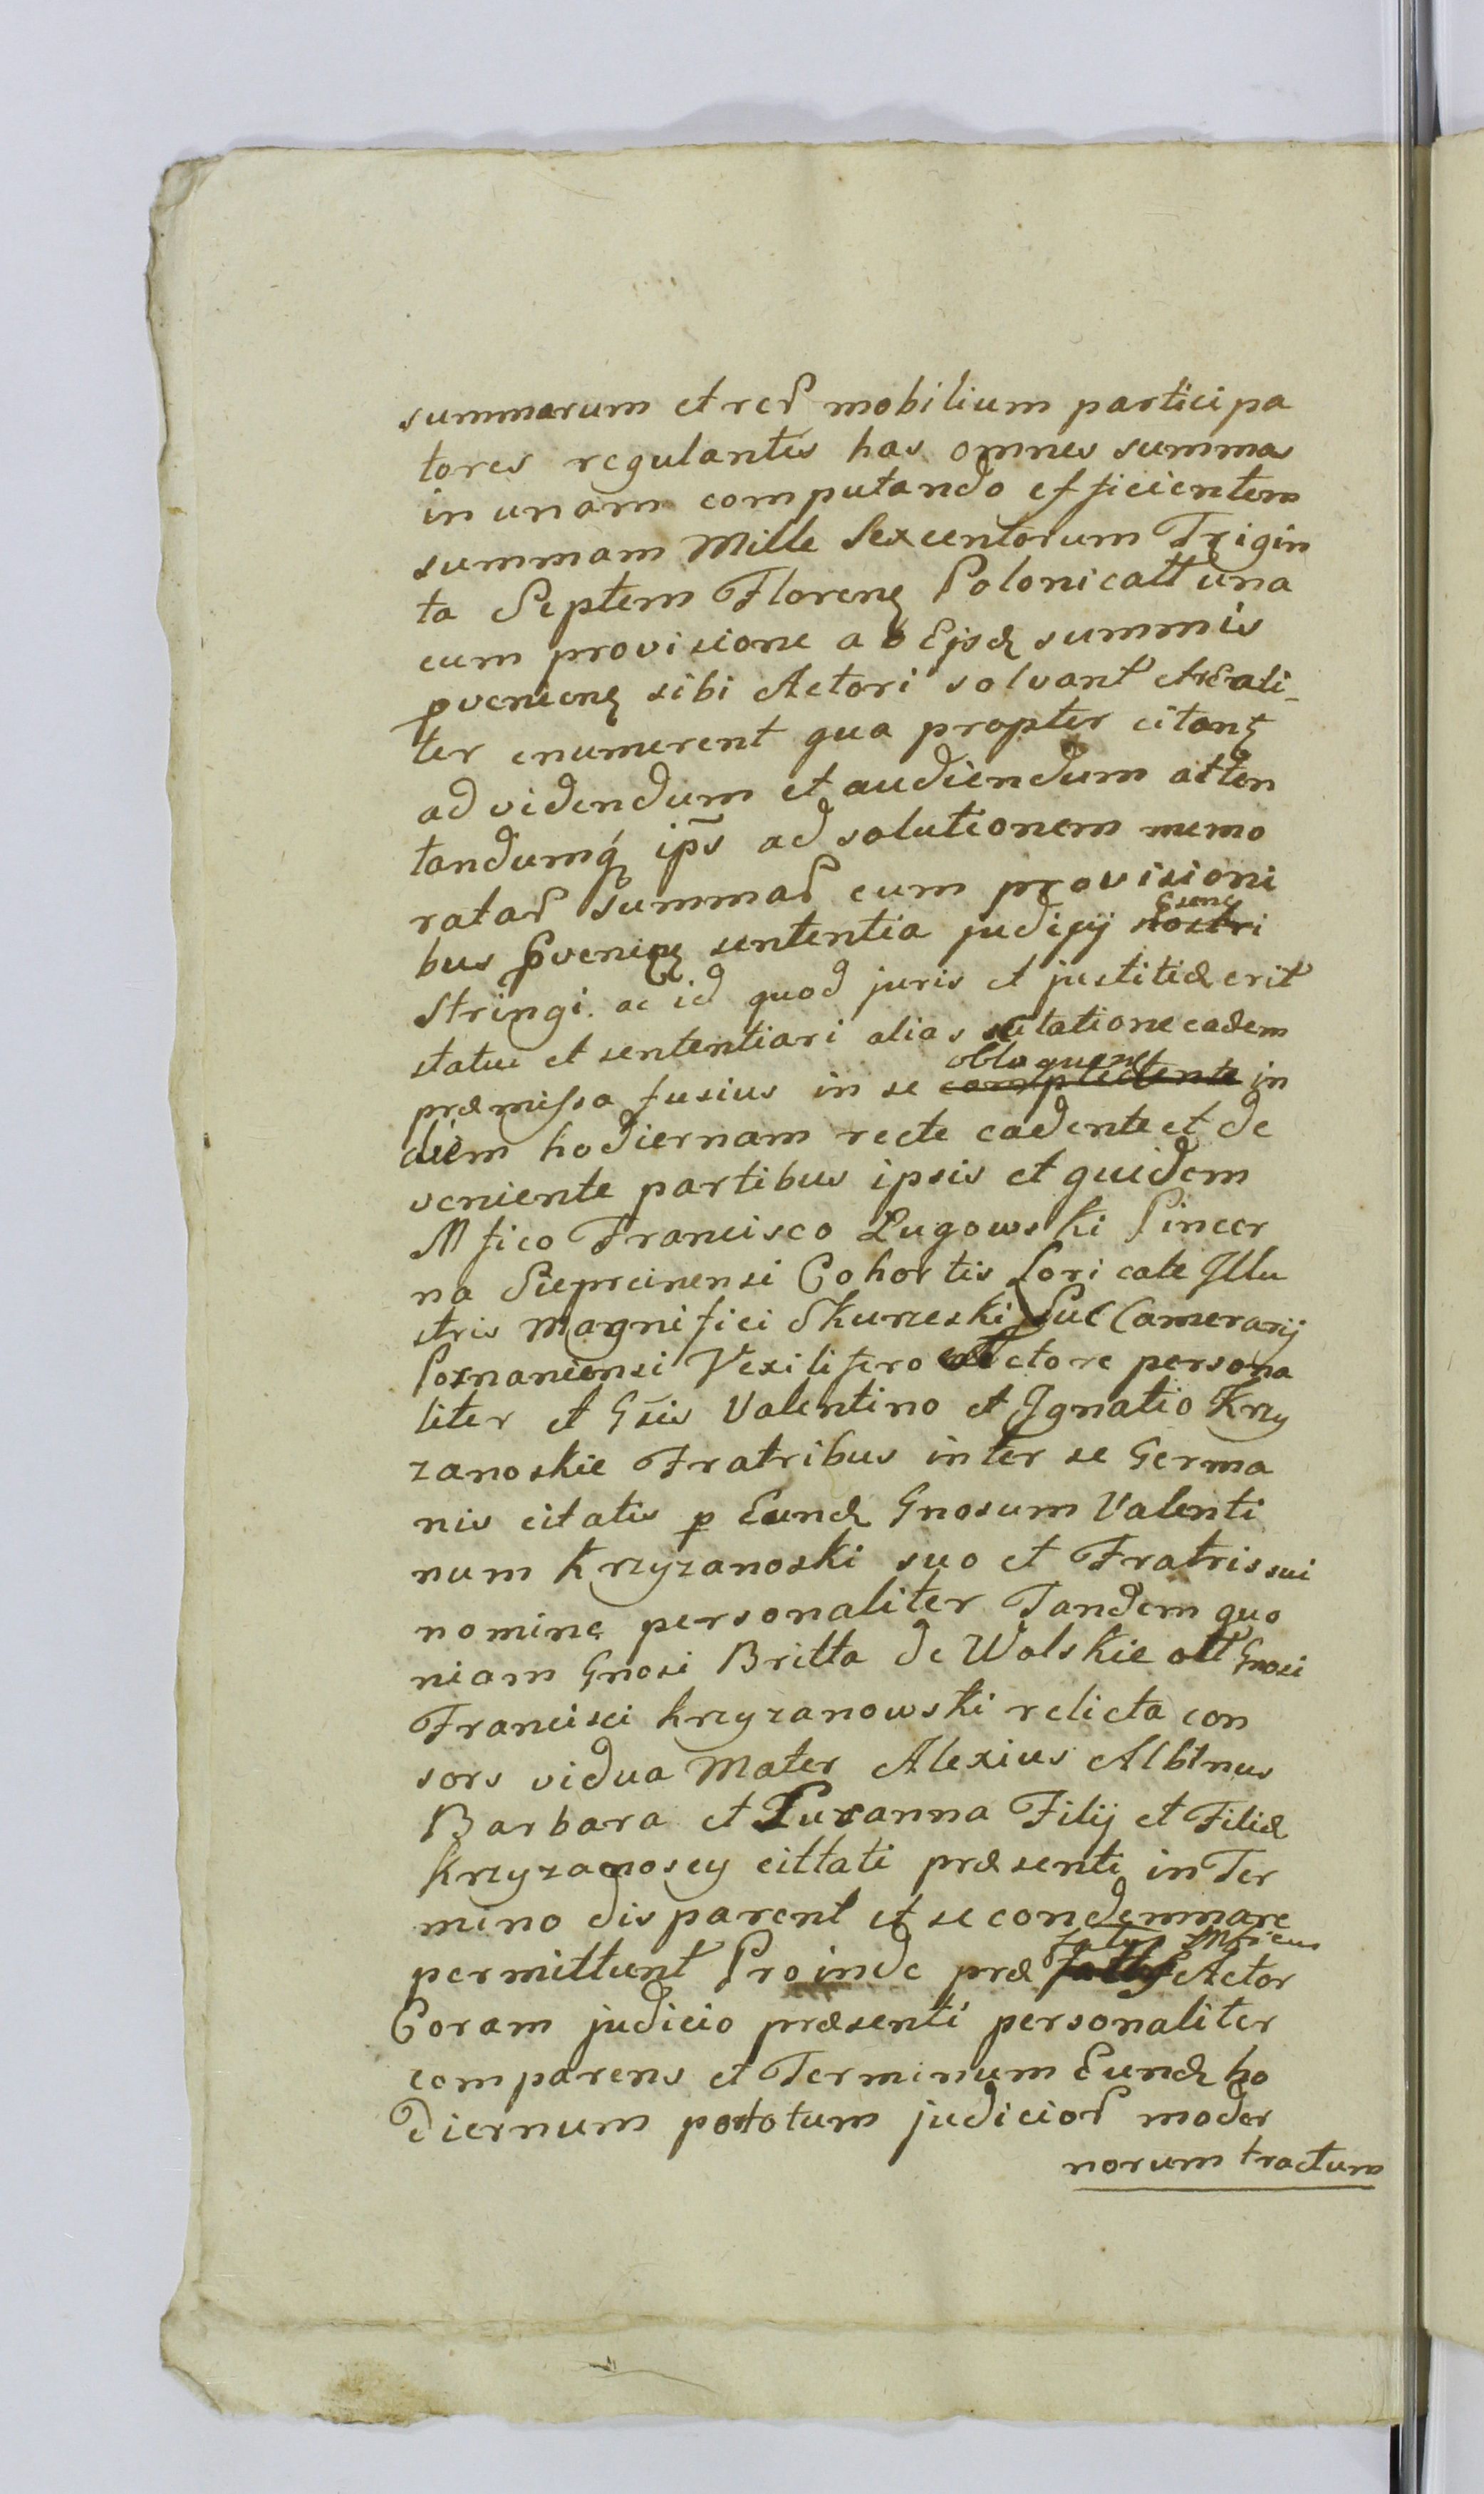 summarum et rer mobilium participa
tores regulantes has omnes summas
in unam computando efficientem
summam Mille Sexcentorum Trigin
ta Septem Floren Polonicall una
cum provisione ab Ejsd summis
pvenien sibi Actori solvant et reali-
ter enumerent qua propter citant
ad videndum et audiendum atten
tandumq ips ad solutionem memo
ratar summar cum provisioni
bus pvenien sententia judicij
stringi. ac id quod juris et justitiæ erit
statui et sententiari alias citatione eadem
præmissa fusius in se obloquene in
diem hodiernam recte cadente et de
veniente partibus ipsis et quidem
Mfico Francisco Lugowski Pincer
na Cohortis Loricate Illu
stris Magnifici Skurzeski Suc Camerarij
Posnaniensi Vexilifero Actore persona
liter et Gsis Valentino et Ignatio Krzy
zanoskie Fratribus inter se Germa
nis citatis p Eund Gnosum Valenti
num Krzyzanoski suo et Fratris sui
nomine personaliter Tandem quo
niam Gnosi Britta de Wolskie olt Gnosi
Francisci Krzyzanowski relicta con
sors vidua Mater Alexius Albtnus
Barbara et Zuzanna Filij et Filiæ
Krzyzanoscy cittati præsenti in Ter
mino disparent et se condemnare
permittunt Proinde præ fatus Mficus Actor
Coram judicio præsenti personaliter
comparens et Terminum Eund ho
diernum po totum judicior moder
norum tractum